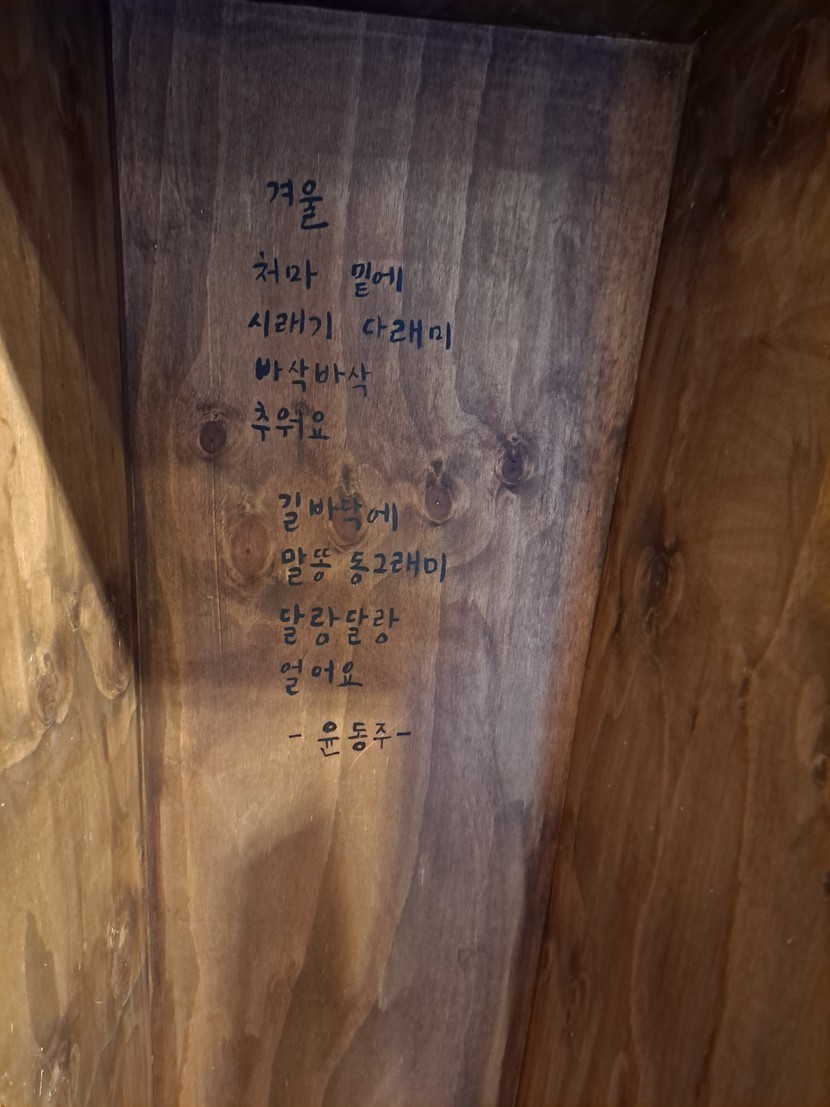 겨울
처마 밑에
시래기 다래미
바삭바삭
추워요
길바닥에
말똥 동그래미
달랑달랑
얼어요
- 윤동주 -